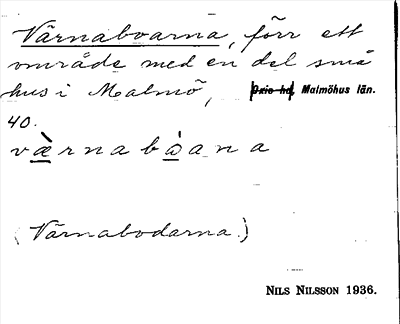 Värnaboarna, förr ett
område med en del små
hus i Malmö, Oxie hd, Malmöhus län.
40.
væ̀rnabòana
(Värnabodarna.)
NILS NILSSON 1936.